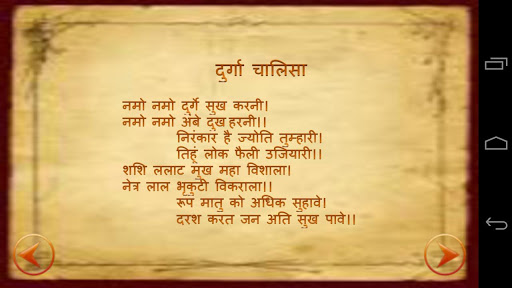 दुर्गा चालिसा
नमो नमो दुर्गे सुख करनी।
नमो नमो अंबे दुःख हरनी।।
निरंकार है ज्योति तुम्हारी।
तिहूं लोक फैली उजियारी।।
शशि ललाट मुख महा विशाला।
नेत्र लाल भृकुटी विकराला।।
रूप मातु को अधिक सुहावे।
दरश करत जन अति सुख पावे।।